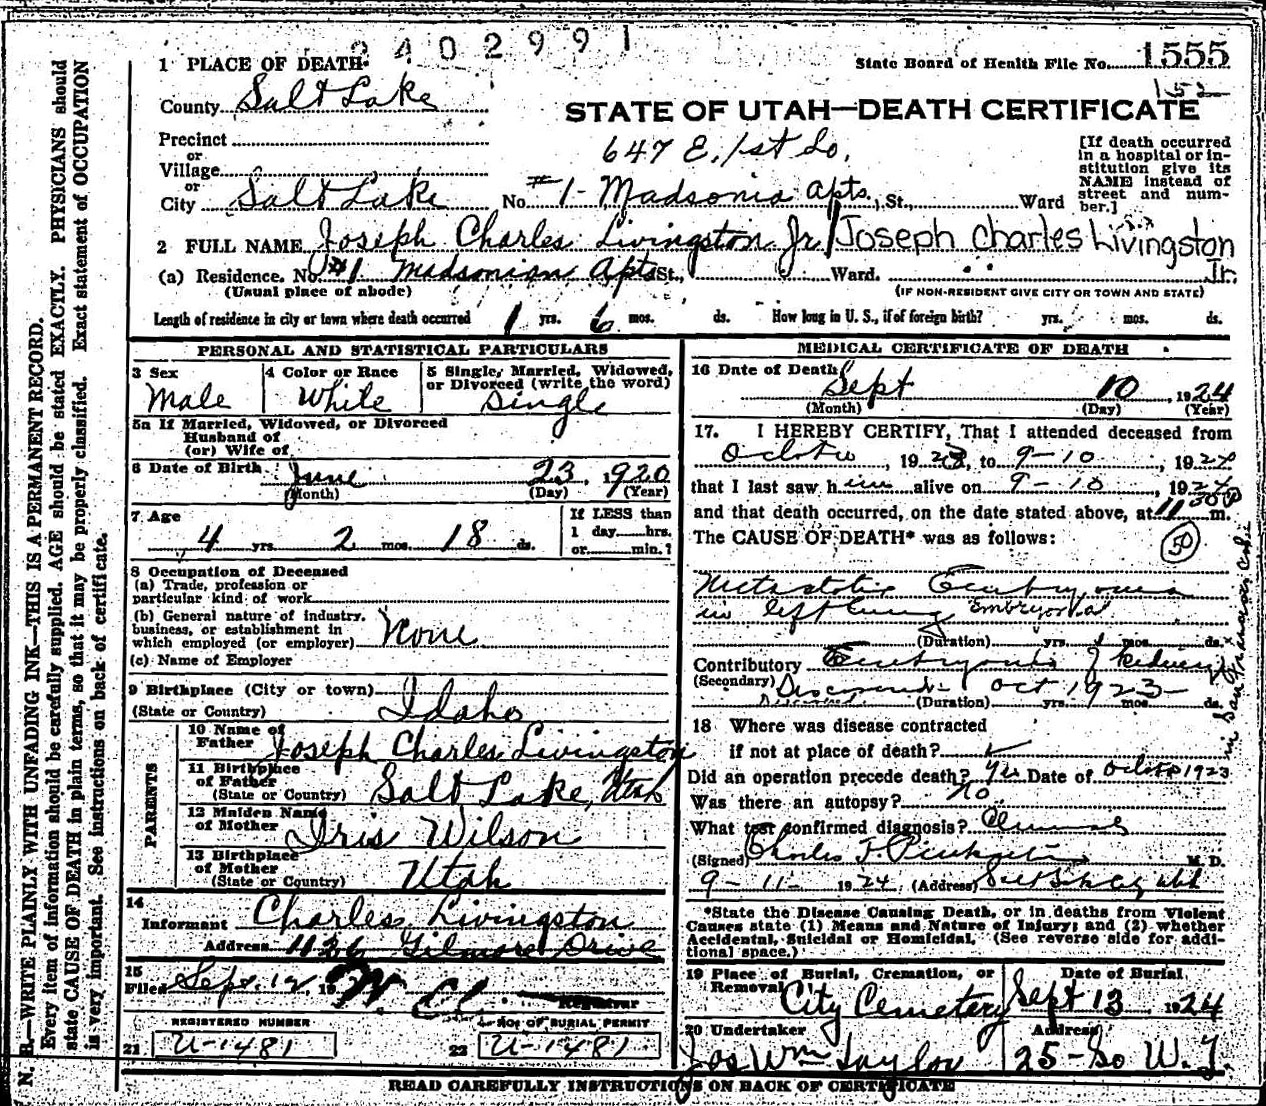 2402991
1 PLACE OF DEATH
State Board of Health File No. 1555
County Salt Lake
STATE OF UTAH—DEATH CERTIFICATE
Precinct
647 E. 1st So.
or
Village
or
City Salt Lake No. #1- Madsonia Apts., St., Ward
[If death occurred in a hospital or institution give its NAME instead of street and number.]
2 FULL NAME Joseph Charles Livingston Jr. Joseph Charles Livingston Jr.
(a) Residence. No. #1 Madsonian Apts St., Ward.
(Usual place of abode)
(IF NON-RESIDENT GIVE CITY OR TOWN AND STATE)
Length of residence in city or town where death occurred 1 yrs. 6 mos. ds. How long in U. S., if of foreign birth? yrs. mos. ds.
PERSONAL AND STATISTICAL PARTICULARS
3 Sex
Male
4 Color or Race
White
5 Single, Married, Widowed, or Divorced (write the word)
Single
5a If Married, Widowed, or Divorced
Husband of
(or) Wife of
6 Date of Birth June 23, 1920
(Month) (Day) (Year)
7 Age
4 yrs. 2 mos. 18 ds.
If LESS than
1 day hrs.
or min.?
8 Occupation of Deceased
(a) Trade, profession or
particular kind of work
(b) General nature of industry,
business, or establishment in
which employed (or employer) None
(c) Name of Employer
9 Birthplace (City or town)
(State or Country) Idaho
PARENTS
10 Name of
Father Joseph Charles Livingston
11 Birthplace
of Father
(State or Country) Salt Lake, Utah
12 Maiden Name
of Mother Iris Wilson
13 Birthplace
of Mother
(State or Country) Utah
14
Informant Charles Livingston
Address 1136 Gilmore Drive
15
Filed Sept. 12, 19
Registrar
REGISTERED NUMBER
21 U-1481
NO. OF BURIAL PERMIT
22 U-1481
MEDICAL CERTIFICATE OF DEATH
16 Date of Death Sept 10, 1924
(Month) (Day) (Year)
17. I HEREBY CERTIFY, That I attended deceased from
1923, to 9-10, 1924
that I last saw him alive on 9-10, 1924
and that death occurred, on the date stated above, at 11:30 P m.
The CAUSE OF DEATH* was as follows:
50
Metastatic Embryoma
in left lung Embryonal
(Duration) yrs. mos. ds.
Contributory of Kidney
(Secondary) Discovered- Oct 1923-
(Duration) yrs. mos. ds.
in San Francisco
18 Where was disease contracted
if not at place of death?
Did an operation precede death? Yes Date of 1923
Was there an autopsy? No
What test confirmed diagnosis? Clinical
(Signed) Charles F. M. D.
9-11-1924, (Address) Salt Lake City Utah
*State the Disease Causing Death, or in deaths from Violent
Causes state (1) Means and Nature of Injury; and (2) whether
Accidental, Suicidal or Homicidal. (See reverse side for additional space.)
19 Place of Burial, Cremation, or
Removal City Cemetery
Date of Burial
Sept 13 1924
20 Undertaker
Jos Wm Taylor
Address
25-So W. T.
READ CAREFULLY INSTRUCTIONS ON BACK OF CERTIFICATE
N. B.—WRITE PLAINLY WITH UNFADING INK—THIS IS A PERMANENT RECORD.
Every item of information should be carefully supplied. AGE should be stated EXACTLY. PHYSICIANS should
state CAUSE OF DEATH in plain terms, so that it may be properly classified. Exact statement of OCCUPATION
is very important. See instructions on back of certificate.